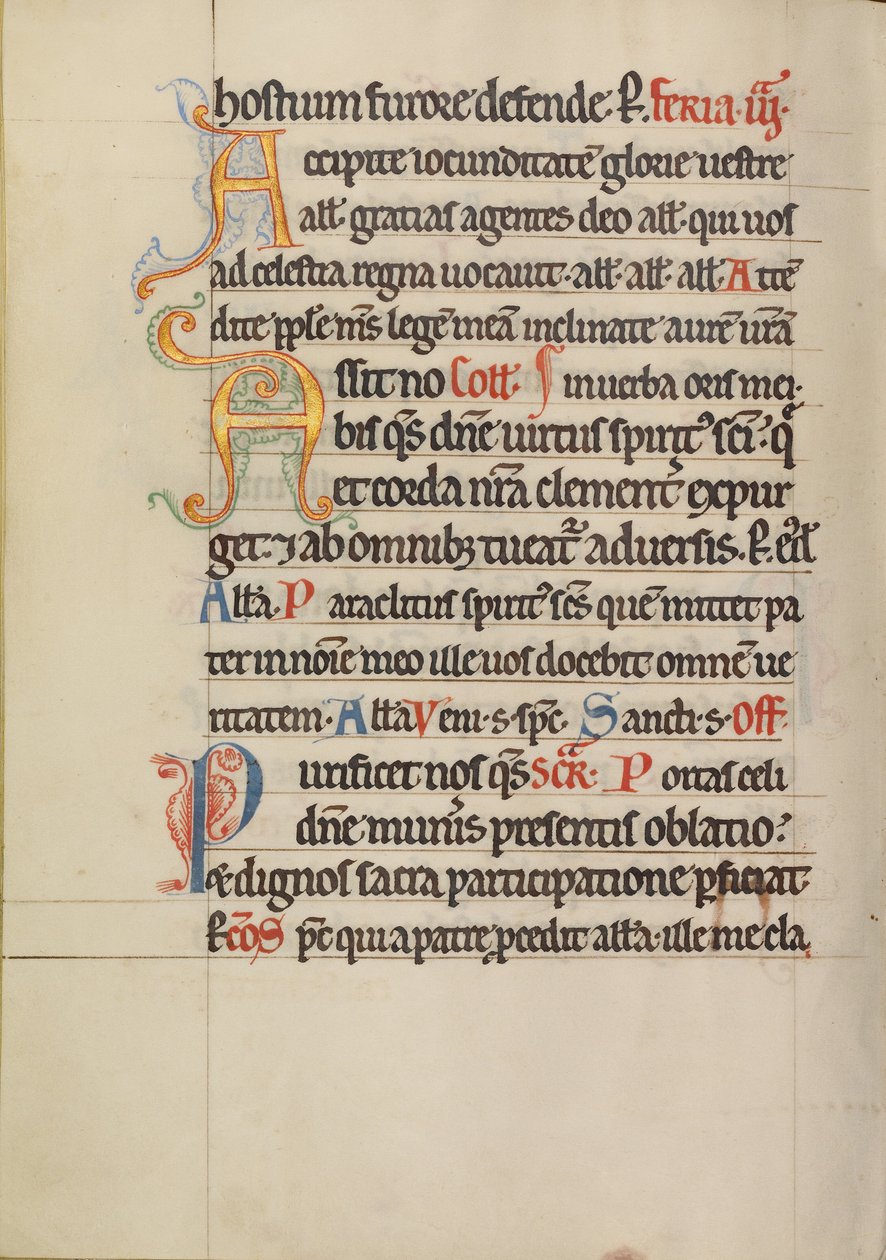 hostium furore defende. R. feria.iiiᵃ.
Accipite iocunditatē glorie uestre
all̄. gratias agentes deo all̄. qui uos
ad celestia regna uocauit. all̄. all̄. all̄. Attē
dite pp̄le m̄s legē meā inclinate aurē ur̄ā
Assit no Coll̄. S in uerba oris mei.
bis qs̄ dn̄e uirtus spirit᷒ sc̄i: q̄
et corda nr̄a clement̄ expur
get. ⁊ ab omnibꝫ tueat᷑ aduersis. R. eūd̄
All̄a. P araclitus spirit᷒ sc̄s quē mittet pa
ter in noīe meo ille uos docebit omnē ue
ritatem. All̄a Veni.s.sp̄c. Sancti.s. Off̄
Purificet nos qs̄ SCR̄. Portas celi
dn̄e muneris presentis oblatio:
& dignos sacra participatione ꝑficiat.
R cōS p̄c qui a patre ꝓcedit all̄a. ille me cla